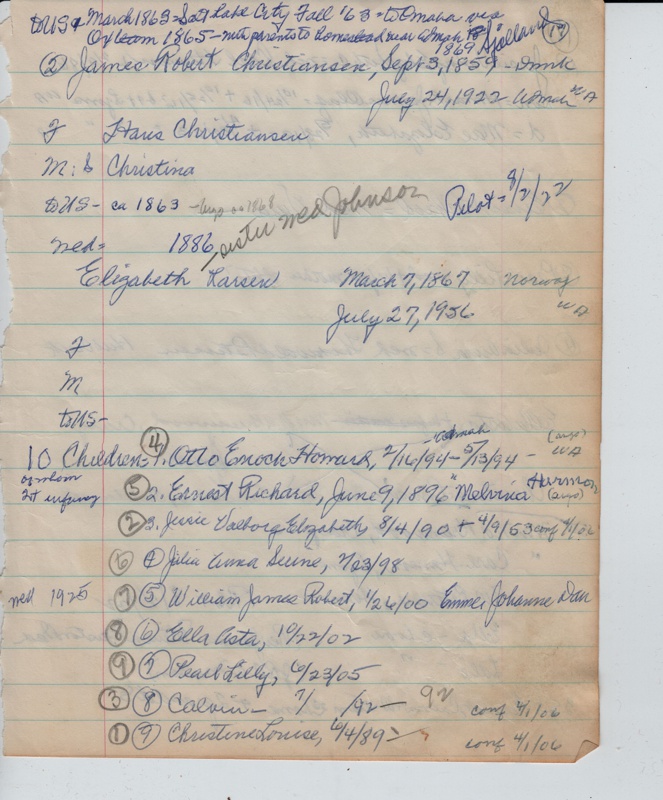 to US & March 1863 - Salt Lake City Fall '63 - to Omaha via
Ox team 1865 - with parents to homestead near Admah
1869
17
② James Robert Christiansen, Sept 3, 1859 - Dmk
July 24, 1922 Admah WA
F Hans Christiansen
M: & Christina
to US - ca 1863
Pilot = 8/2/22
med = 1886 - sister med Johnson
Elizabeth Larsen March 7, 1867 Norway
July 27, 1956 WA
F
M
to US -
10 Children = ④ 1. Otto Enoch Howard, 2/16/94 - Admah 5/13/94 - WA
of whom
1st infancy
⑤ 2. Ernest Richard, June 9, 1896 "Melvina Harmon
② 3. Jessie Valborg Elizabeth, 8/4/90 + 4/9/53
⑥ ④ Julia Anna Serine, 7/23/98
med 1925 ⑦ ⑤ William James Robert, 1/26/00 Emma Johanne Dau
⑧ ⑥ Ella Asta, 10/22/02
⑨ ⑦ Pearl Lilly, 6/23/05
③ ⑧ Calvin - 7/ /92 - 92 conf 4/1/06
① ⑨ Christine Louise, 6/4/89 - conf 4/1/06